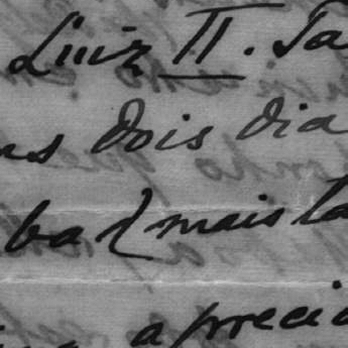 Luiz II. Ta
ns dois dia
ba { mais ta
apreci